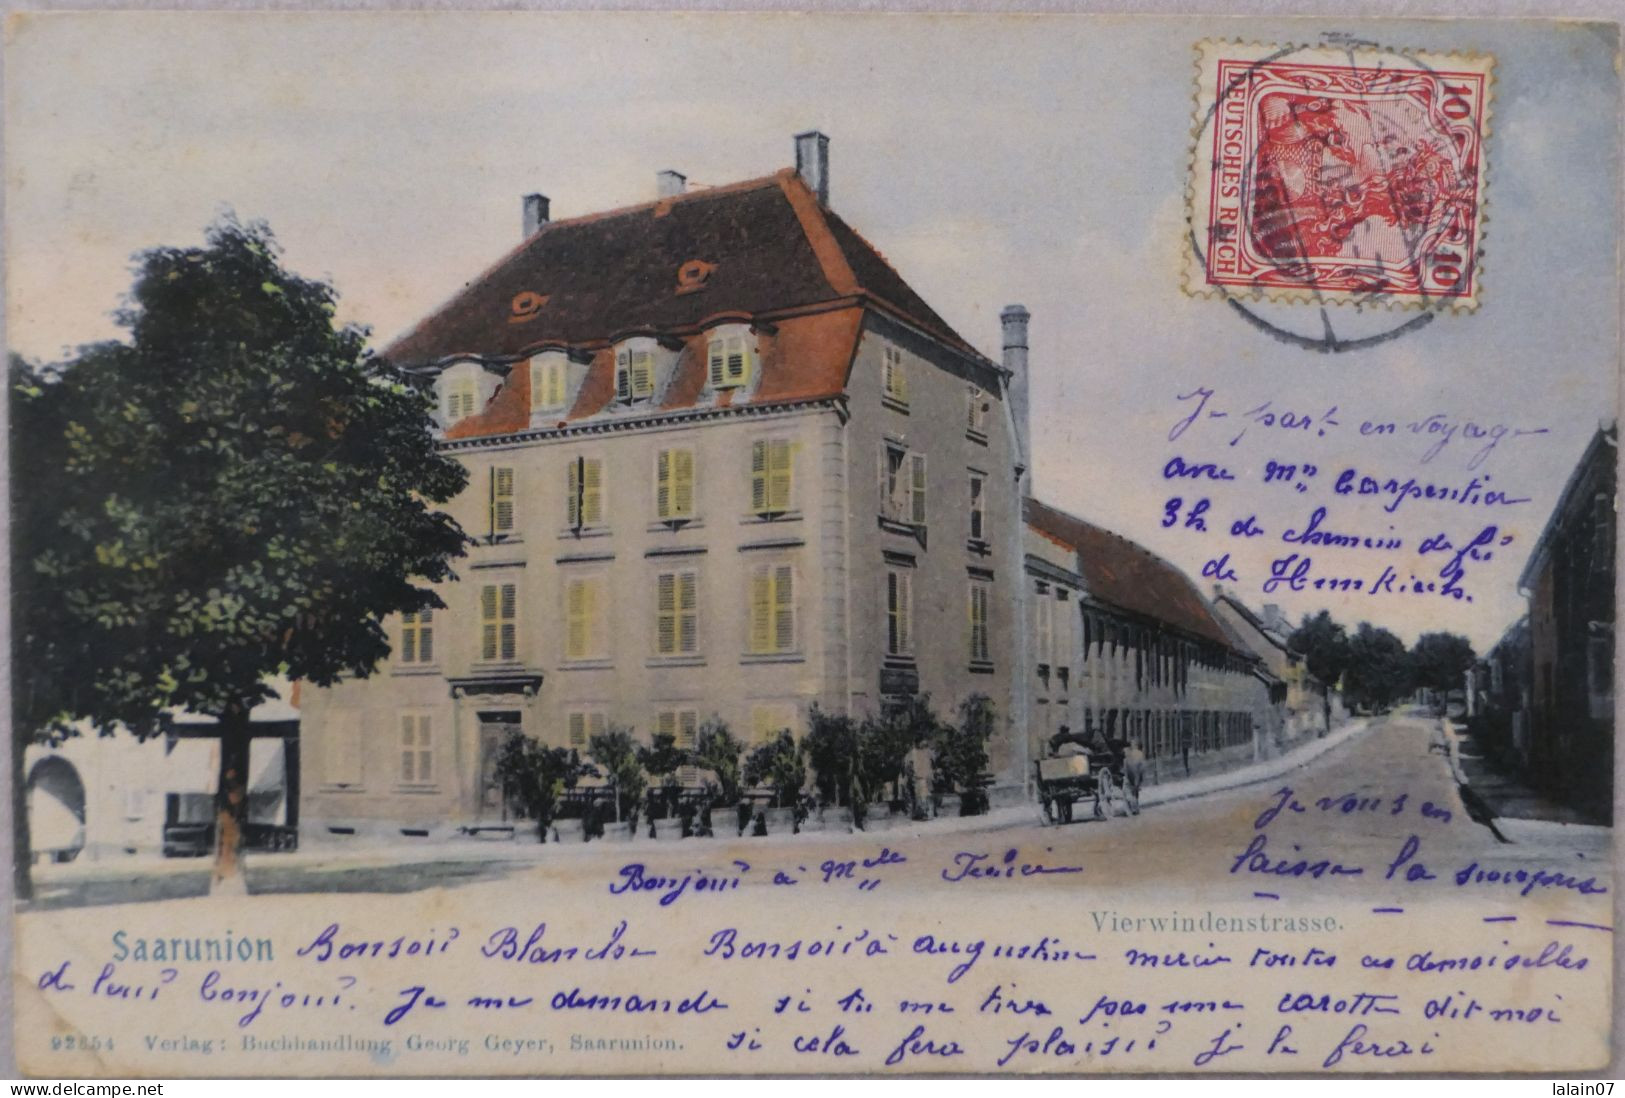 10 10
DEUTSCHES REICH
Je part en voyage
avec Mr Carpentier
3 h. de chemin de fer
de
Je vous en
laisse la surprise
Bonjour à Melle
Vierwindenstrasse.
Saarunion
Bonsoir Blanche Bonsoir à augustine merci toutes ces demoiselles
de leur bonjour. Je me demande si tu me tire pas une carotte dit moi
92654 Verlag: Buchhandlung Georg Geyer, Saarunion.
si cela fera plaisir je le ferai
lalain07